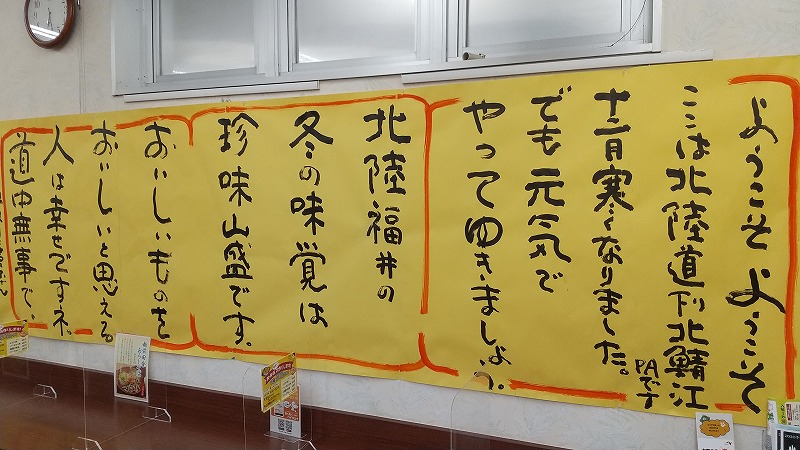 ようこそ ようこそ
ここは北陸道下り北鯖江
PAです
十二月寒くなりました。
でも元気で
やってゆきましょう。
北陸福井の
冬の味覚は
珍味山盛です。
おいしいものを
おいしいと思える
人は幸せですネ。
道中無事で、